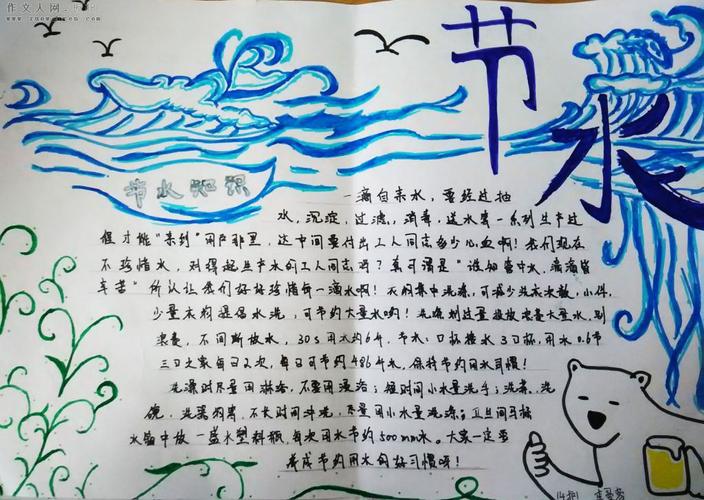 作文人网
节
水
节水知识
一滴自来水，要经过抽
水，沉淀，过滤，消毒，送水等一系列生产过
程才能“来到”用户那里，这中间要付出工人同志多少心血啊！我们现在
不珍惜水，对得起生产水的工人同志吗？真可谓是“谁知壶中水，滴滴皆
辛苦”所以让我们好好珍惜每一滴水啊！衣物集中洗涤，可减少洗衣次数，小件，
少量衣物提倡手洗，可节约大量水哟！洗涤剂过量投放浪费大量水，刷
浪费，不间断放水，30s用水约6升，节水：口杯接水3口杯，用水0.6升
三口之家每日2次，每月可节约486升水，保持节约用水习惯！
洗澡时尽量用淋浴，不要用浸浴；短时间小水量洗手；洗菜、洗
碗，洗莴笋，不长时间冲洗，尽量用小水量洗涤；卫生间马桶
水箱中放一盛水塑料瓶，每次用水节约500mm水。大家一定要
养成节约用水的好习惯呀！